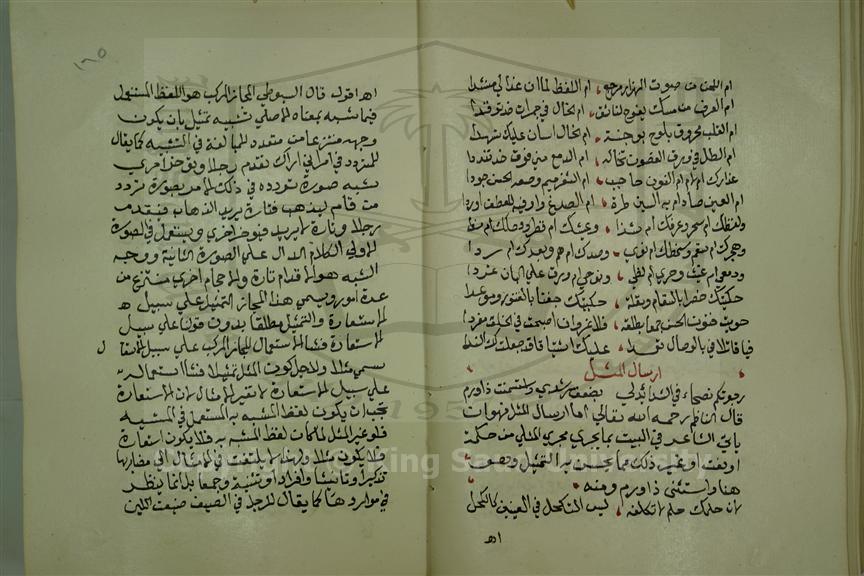 ام اللحن من صوت الهزار مرجع ام اللفظ لما ان غدا لي منشدا
ام العرف من مسك يفوه لناشق ام الخال في جمرات خد توقدا
ام القلب محروق يلوح بوجنة ام الخال انسان عليك تشهدا
ام الطل في ورق الغصون تخاله ام الدمع من فوق خد تبددا
عذارك ام لام ام النون حاجب ام الثغر ميم وصفه لحسن جودا
ام العين صاد ام به السين طرة ام الصدغ واو في للعطف
ولفظك ام سحر وعرفك ام شذا وعينك ام قطر وصلك ام
وهجرك ام سقم وسخطك ام نوى وصدك ام هم وبعدك ام ردا
ودمعي ام غيث وحري ام لظى ونوحي ام ورق على البان غردا
حكيتك خصرا بالسقام وبقلة حكيتك جفنا بالفتور
حويت فنون الحسن جمعا بطلعة فلا غرو ان اصبحت في الخلق مفردا
فيا قاتلا في بالوصال عليك
ارسال المثل
رجوتكم نصحاء في الشدائد لي بضعف رشدي واستسمنت ذا ورم
قال الناظم رحمه الله تعالى اما ارسال المثل فهو ان
يأتي الشاعر في البيت بما يجري مجرى المثل من حكمة
او نعت او غير ذلك مما يحسن به التمثيل وهو
هنا واستسمنت ذا ورم ومنه
لان حلمك حلم لا تكلفه ليس التكحل في العينين كالكحل
اه
١٦٥
اه اقول قال السيوطي المجاز المركب هو اللفظ المستعمل
فيما شبه بمعناه الاصلي تشبيه تمثيل بان يكون
وجهه منتزعا من متعدد للمبالغة في التشبيه كما يقال
للمتردد في امر اني اراك تقدم رجلا وتؤخر اخرى
شبه صورة تردده في ذلك الامر بصورة تردد
من قام ليذهب فتارة يريد الذهاب فيقدم
رجلا وتارة لا يريد فيؤخر اخرى ويستعمل في الصورة
الاولى الكلام الدال على الصورة الثانية ووجه
الشبه هو الاقدام تارة والاحجام اخرى منتزع من
عدة امور ويسمى هذا المجاز التمثيل على سبيل
الاستعارة والتمثيل مطلقا بدون قولنا على سبيل
الاستعارة فشا الاستعمال للمجاز المركب على سبيل الاستعا
سمي مثلا ولاجل كون المثل تمثيلا فشا استعماله
على سبيل الاستعارة لا تغير الامثال لان الاستعارة
يجب ان يكون لفظ المشبه به المستعمل في المشبه
فلو غير المثل لما كان لفظ المشبه به فلا يكون استعارة
فلا يكون مثلا ولهذا لا يلتفت في الامثال الى مضاربها
تذكيرا وتانيثا وافرادا وتثنية وجمعا بل انما ينظر
في مواردها كما يقال للرجل في الصيف ضيعت اللبن
Copyright © King Saud University
1957